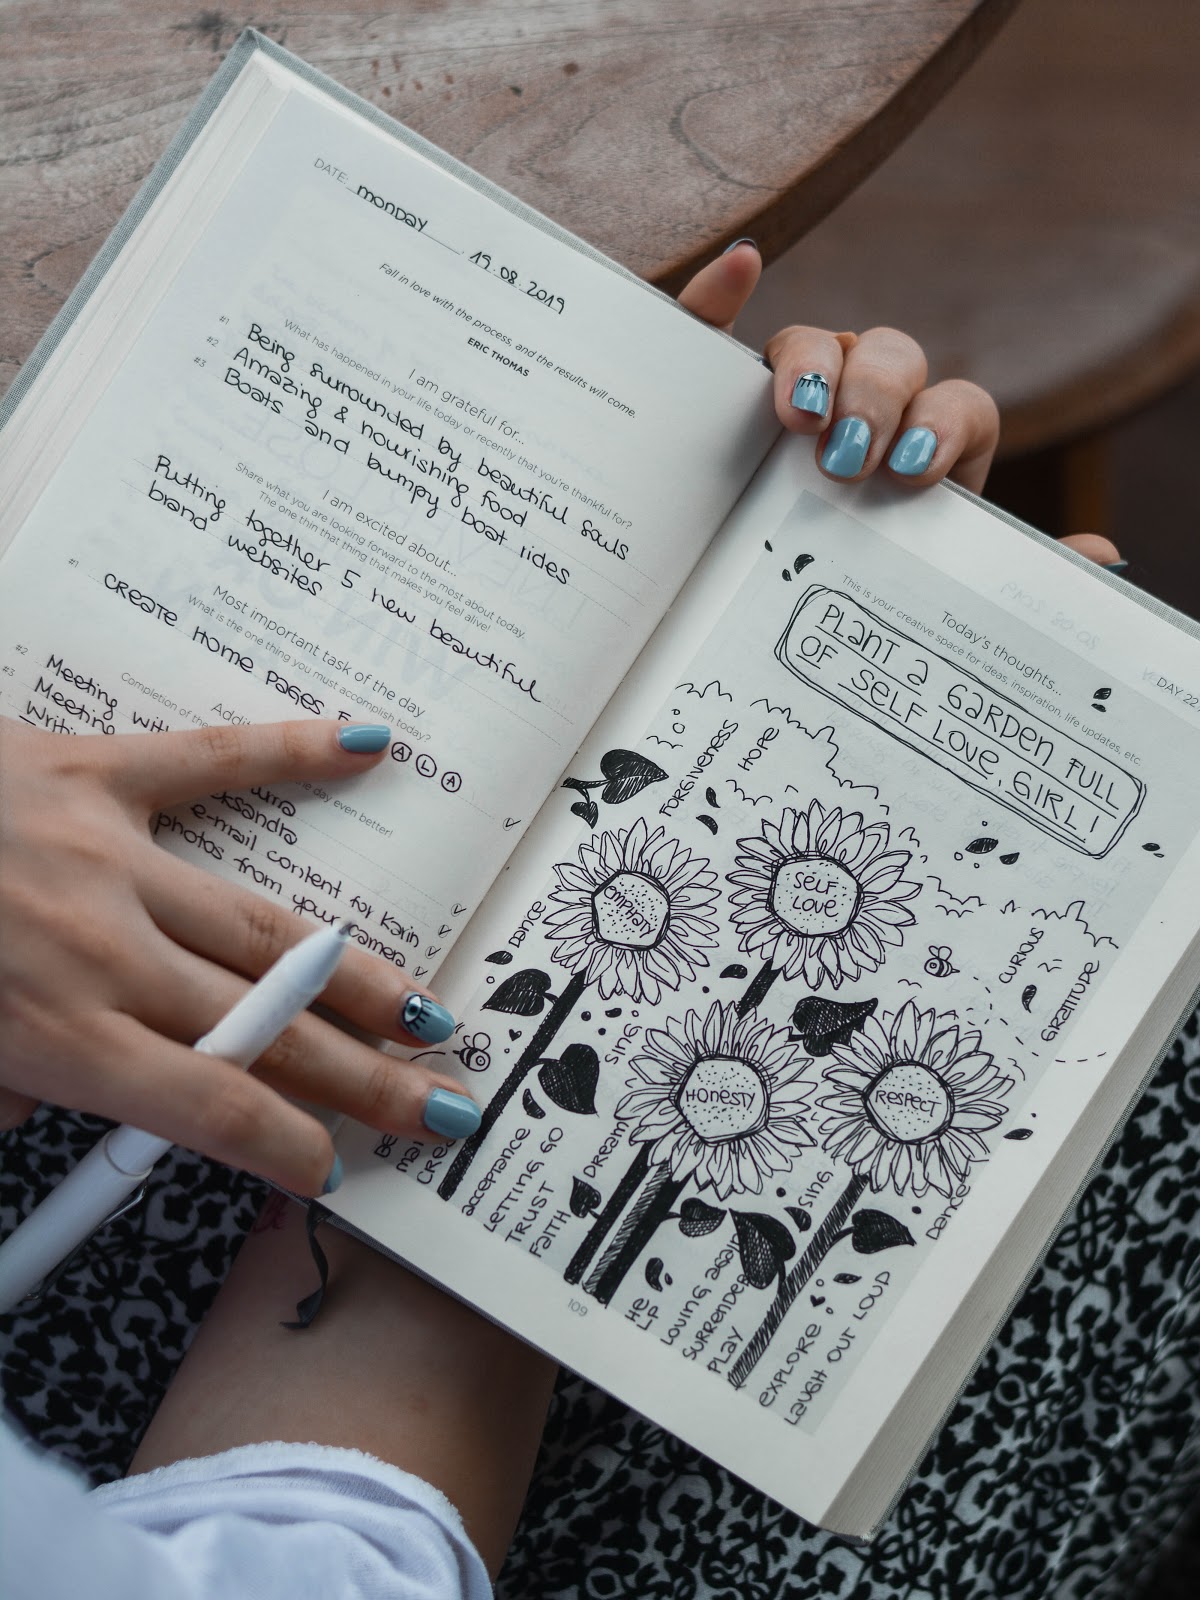 DATE: monday 19.08.2019
Fall in love with the process, and the results will come.
ERIC THOMAS
I am grateful for...
What has happened in your life today or recently that you're thankful for?
#1 Being surrounded by beautiful souls
#2 Amazing & nourishing food
#3 Boats and bumpy boat rides
I am excited about...
Share what you are looking forward to the most about today.
The one thin that thing that makes you feel alive!
Putting together 5 new beautiful
brand websites
Most important task of the day
What is the one thing you must accomplish today?
#1 CREATE HOME PAGES
A L A
Completion of the
day even better!
#2 Meeting with
#3 Meeting
e-mail content for Karin
photos from your camera
DAY 22
Today's thoughts...
This is your creative space for ideas, inspiration, life updates, etc.
PLANT A GARDEN FULL
OF SELF LOVE, GIRL!
FORGIVENESS
HOPE
EMPHATY
SELF
LOVE
DANCE
CURIOUS
GRATITUDE
SING
HONESTY
RESPECT
ACCEPTANCE
LETTING GO
TRUST
FAITH
DREAM
SING
DANCE
HE
LP
LOVING AGAIN
SURRENDER
PLAY
EXPLORE
LAUGH OUT LOUD
109